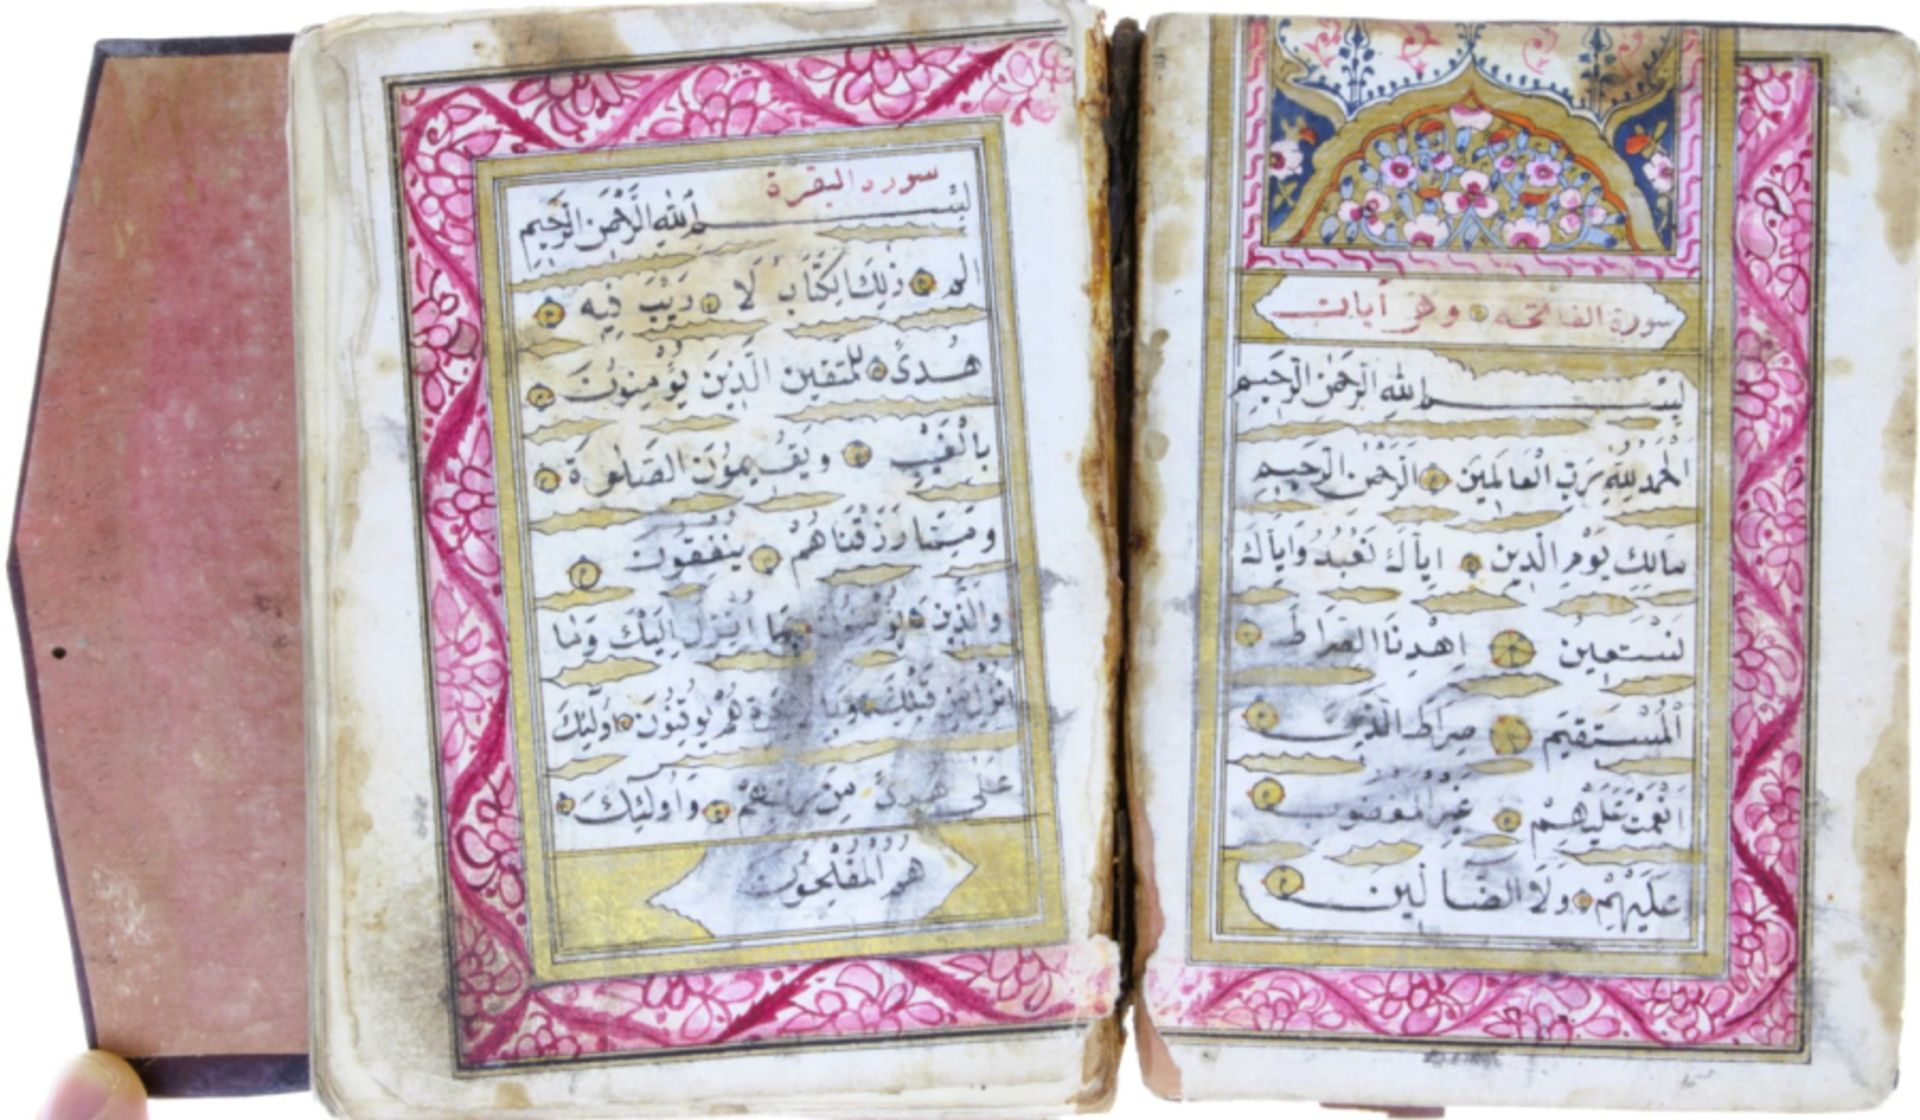 سورة الفاتحه وهى أيات
بِسْمِ اللهِ الرَّحْمٰنِ الرَّحِيمِ
الْحَمْدُ لِلّٰهِ رَبِّ الْعَالَمِينَ الرَّحْمٰنِ الرَّحِيمِ
مَالِكِ يَوْمِ الدِّينِ اِيَّاكَ نَعْبُدُ وَاِيَّاكَ
نَسْتَعِينُ اِهْدِنَا الصِّرَاطَ
الْمُسْتَقِيمَ صِرَاطَ الَّذِينَ
اَنْعَمْتَ عَلَيْهِمْ غَيْرِ الْمَغْضُوبِ
عَلَيْهِمْ وَلَا الضَّالِّينَ
سورة البقرة
بِسْمِ اللهِ الرَّحْمٰنِ الرَّحِيمِ
الم ذٰلِكَ الْكِتَابُ لَا رَيْبَ فِيهِ
هُدىً لِلْمُتَّقِينَ الَّذِينَ يُؤْمِنُونَ
بِالْغَيْبِ وَيُقِيمُونَ الصَّلٰوةَ
وَمِمَّا رَزَقْنَاهُمْ يُنْفِقُونَ
وَالَّذِينَ يُؤْمِنُونَ بِمَا اُنْزِلَ اِلَيْكَ وَمَا
اُنْزِلَ مِنْ قَبْلِكَ هُمْ يُوقِنُونَ اُولٰئِكَ
عَلٰى هُدىً مِنْ رَبِّهِمْ وَاُولٰئِكَ
هُمُ الْمُفْلِحُونَ